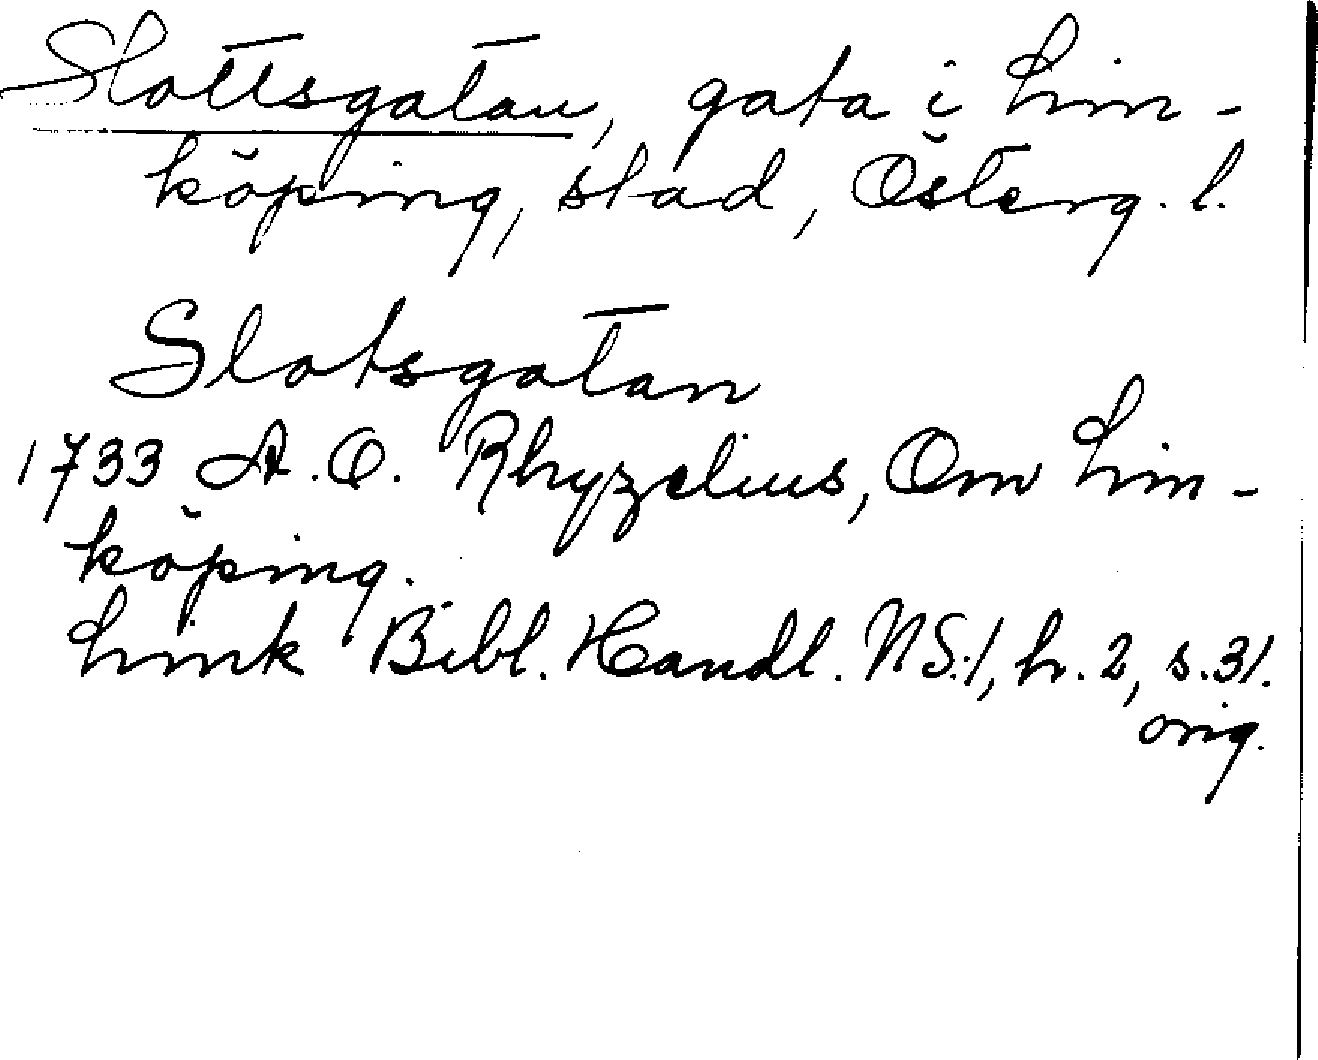 Slottsgatan, gata i Lin-
köping, stad, Österg. l.
Slotsgatan
1733 A. O. Rhyzelius, Om Lin-
köping.
Link Bibl. Handl. NS:1, h. 2, s. 31.
orig.